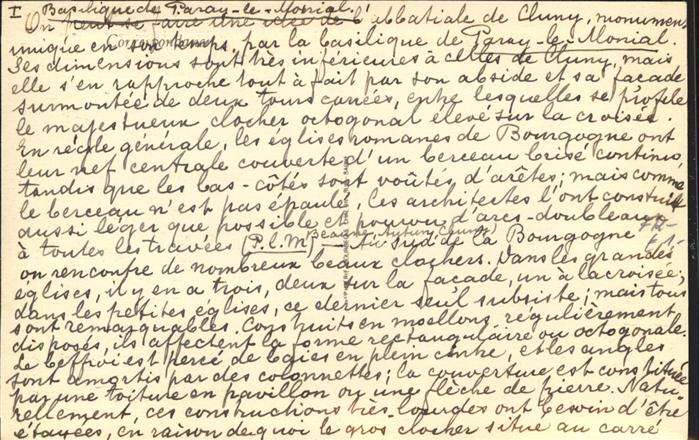 I Basilique de Paray-le-Monial.
On peut se faire une idée de l'abbatiale de Cluny, monument
unique en son temps, par la basilique de Paray-le-Monial.
Ses dimensions sont très inférieures à celles de Cluny, mais
elle s'en rapproche tout à fait par son abside et sa façade
surmontée de deux tours carrées, entre lesquelles se profile
le majestueux clocher octogonal élevé sur la croisée.
En règle générale, les églises romanes de Bourgogne ont
leur nef centrale couverte d'un berceau brisé continu,
tandis que les bas-côtés sont voûtés d'arêtes; mais comme
le berceau n'est pas épaulé, les architectes l'ont construit
aussi léger que possible et pourvu d'arcs-doubleaux
à toutes les travées (P.L.M. Beaune, Autun, Cluny) — Au sud de la Bourgogne
on rencontre de nombreux beaux clochers. Dans les grandes
églises, il y en a trois, deux sur la façade, un à la croisée;
dans les petites églises, ce dernier seul subsiste; mais tous
sont remarquables. Construits en moellons, régulièrement
disposés, ils affectent la forme rectangulaire ou octogonale.
Le beffroi est percé de baies en plein cintre, et les angles
sont amortis par des colonnettes; la couverture est constituée
par une toiture en pavillon ou une flèche de pierre. Natu-
rellement, ces constructions très lourdes ont besoin d'être
étayées, en raison de quoi le gros clocher situé au carré